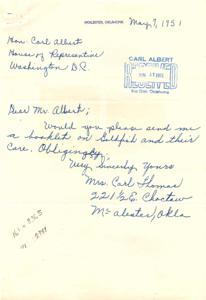 McALESTER, OKLAHOMA
May, 7, 1951
Hon. Carl Albert
House of Representive
Washington D.C.
CARL ALBERT
RECEIVED
Dear Mr. Albert;
Would you please send me
a booklet on Goldfish and their
Care. Obligingly,
Very Sincerely Yours
Mrs. Carl Thomas
221½ E. Choctaw
McAlester, Okla